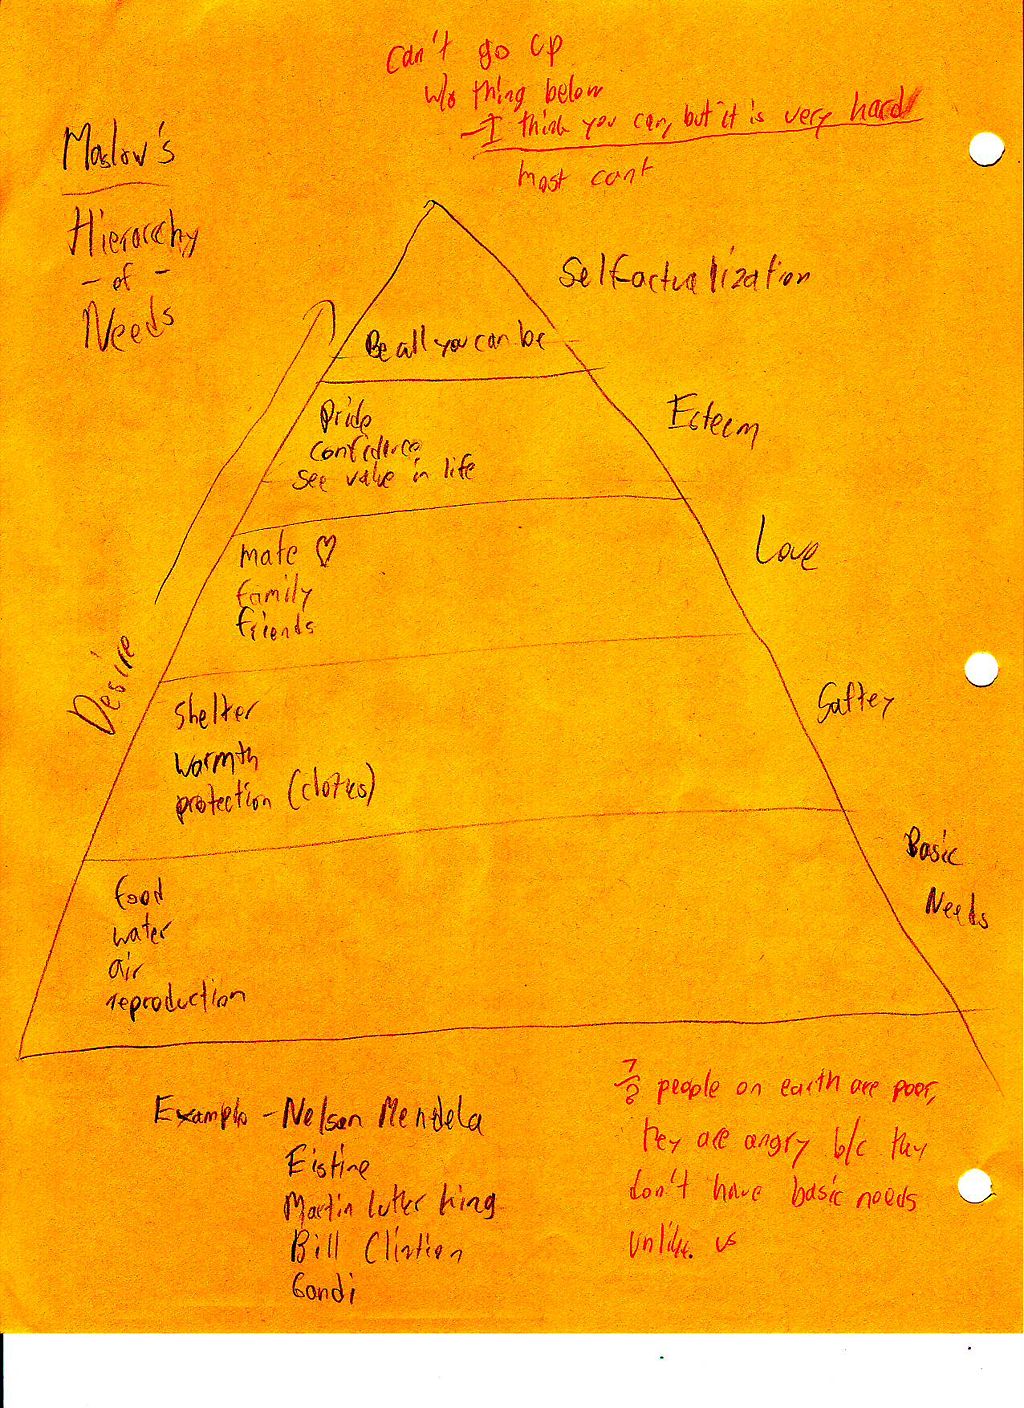 Can't go up
w/o thing below
- I think you can, but it is very hard
most cant
Maslow's
Hierarchy
- of -
Needs
Self actualization
Be all you can be
Esteem
Pride
confidence
see value in life
Love
mate ♡
family
friends
Desire
Saftey
shelter
warmth
protection (clothes)
Basic
Needs
food
water
air
reproduction
Example - Nelson Mendela
Eistine
Martin luther king
Bill Clintion
Gandi
people on earth are poor,
they are angry b/c they
don't have basic needs
unlike us